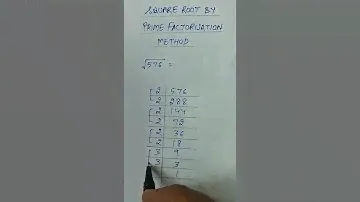 SQUARE ROOT BY
PRIME FACTORISATION
METHOD
√576 =
2 576
2 288
2 144
2 72
2 36
2 18
3 9
3 3
1